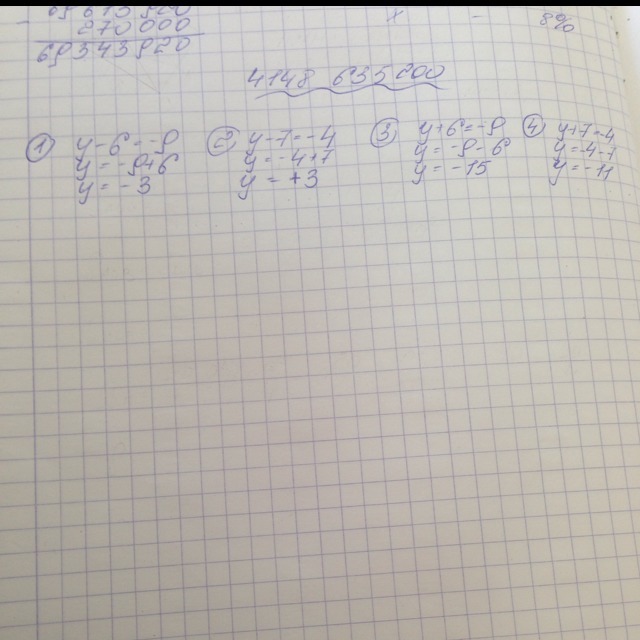 270 000
8%
4148 635 200
① y - 6 = -9
y = -9+6
y = -3
② y - 7 = -4
y = -4+7
y = +3
③ y + 6 = -9
y = -9 - 6
y = -15
④ y + 7 = -4
y = -4 - 7
y = -11